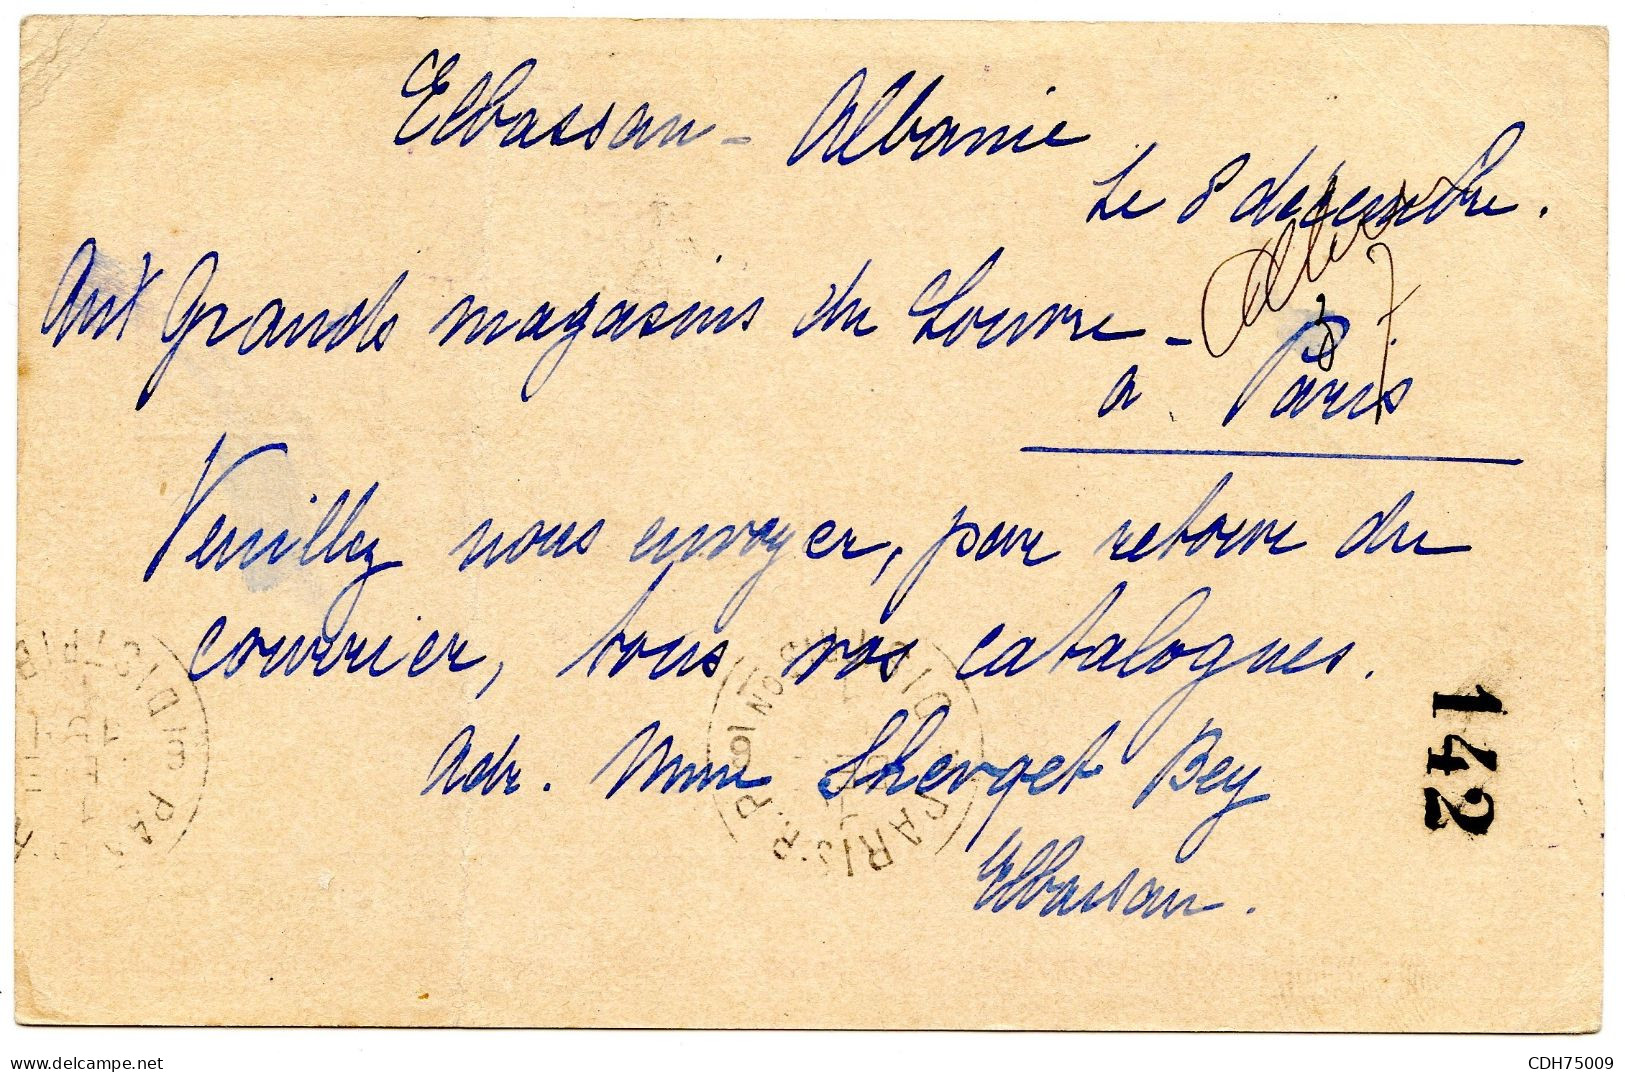 Elbassan - Albanie
Le 8 décembre.
Aux Grands magasins du Louvre -
à Paris
Veuillez nous envoyer, par retour du
courrier, tous vos catalogues.
Adr. Mme Shevqet Bey
Elbassan.
142
PARIS
delcampe.net
CDH75009